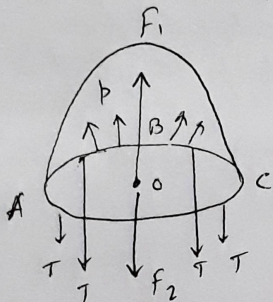 F₁
p
B
A
O
C
T
T
F₂
T
T